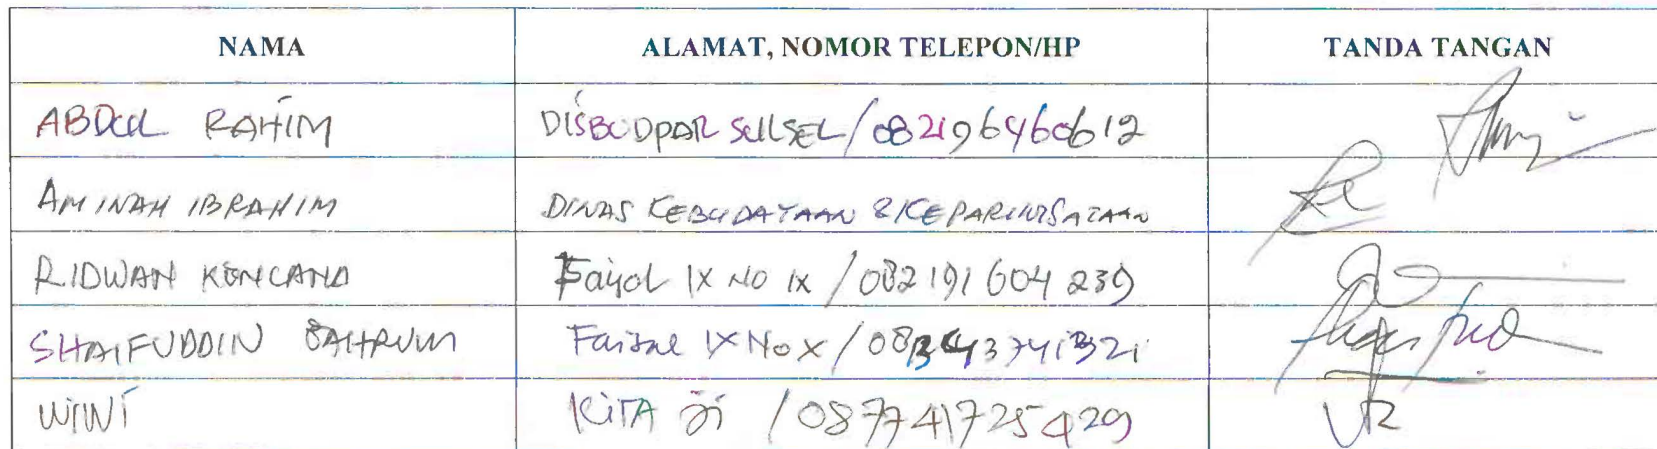 NAMA ALAMAT, NOMOR TELEPON/HP TANDA TANGAN
ABDUL RAHIM DISBUDPAR SULSEL/082196460612
AMINAH IBRAHIM DINAS KEBUDAYAAN & KEPARIWISATAAN
RIDWAN KENCANA Faisal IX NO IX / 082191604239
SHAIFUDDIN BAHRUM Faisal IX No X /
WIWI KITA Ji / 087741725429